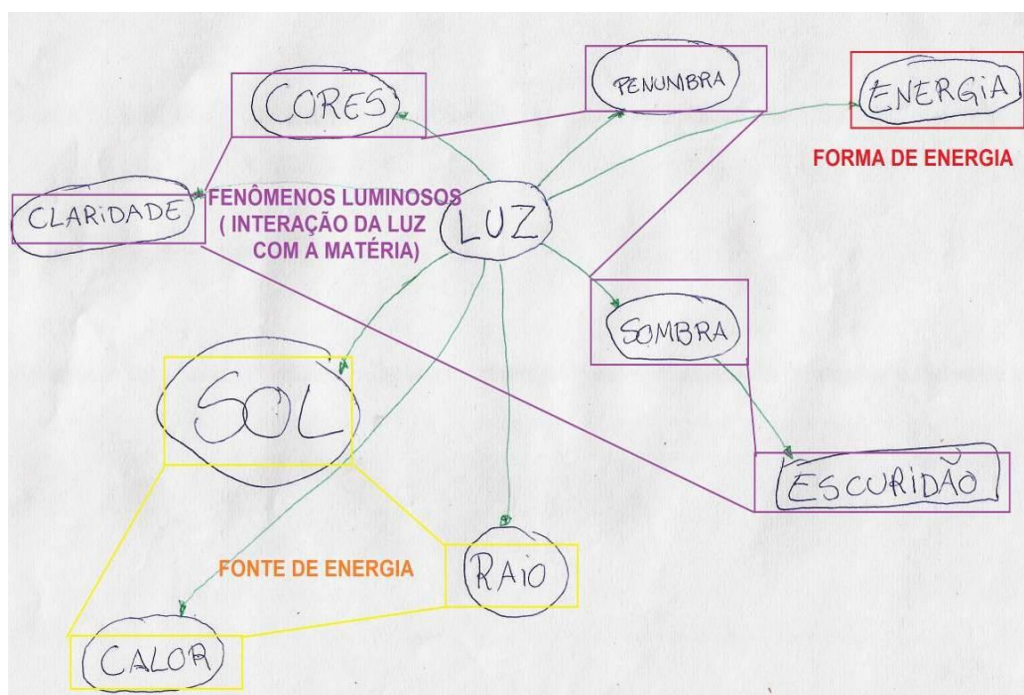 CORES
PENUMBRA
ENERGIA
FORMA DE ENERGIA
CLARIDADE
FENÔMENOS LUMINOSOS
( INTERAÇÃO DA LUZ
COM A MATÉRIA)
LUZ
SOMBRA
SOL
ESCURIDÃO
FONTE DE ENERGIA
RAIO
CALOR